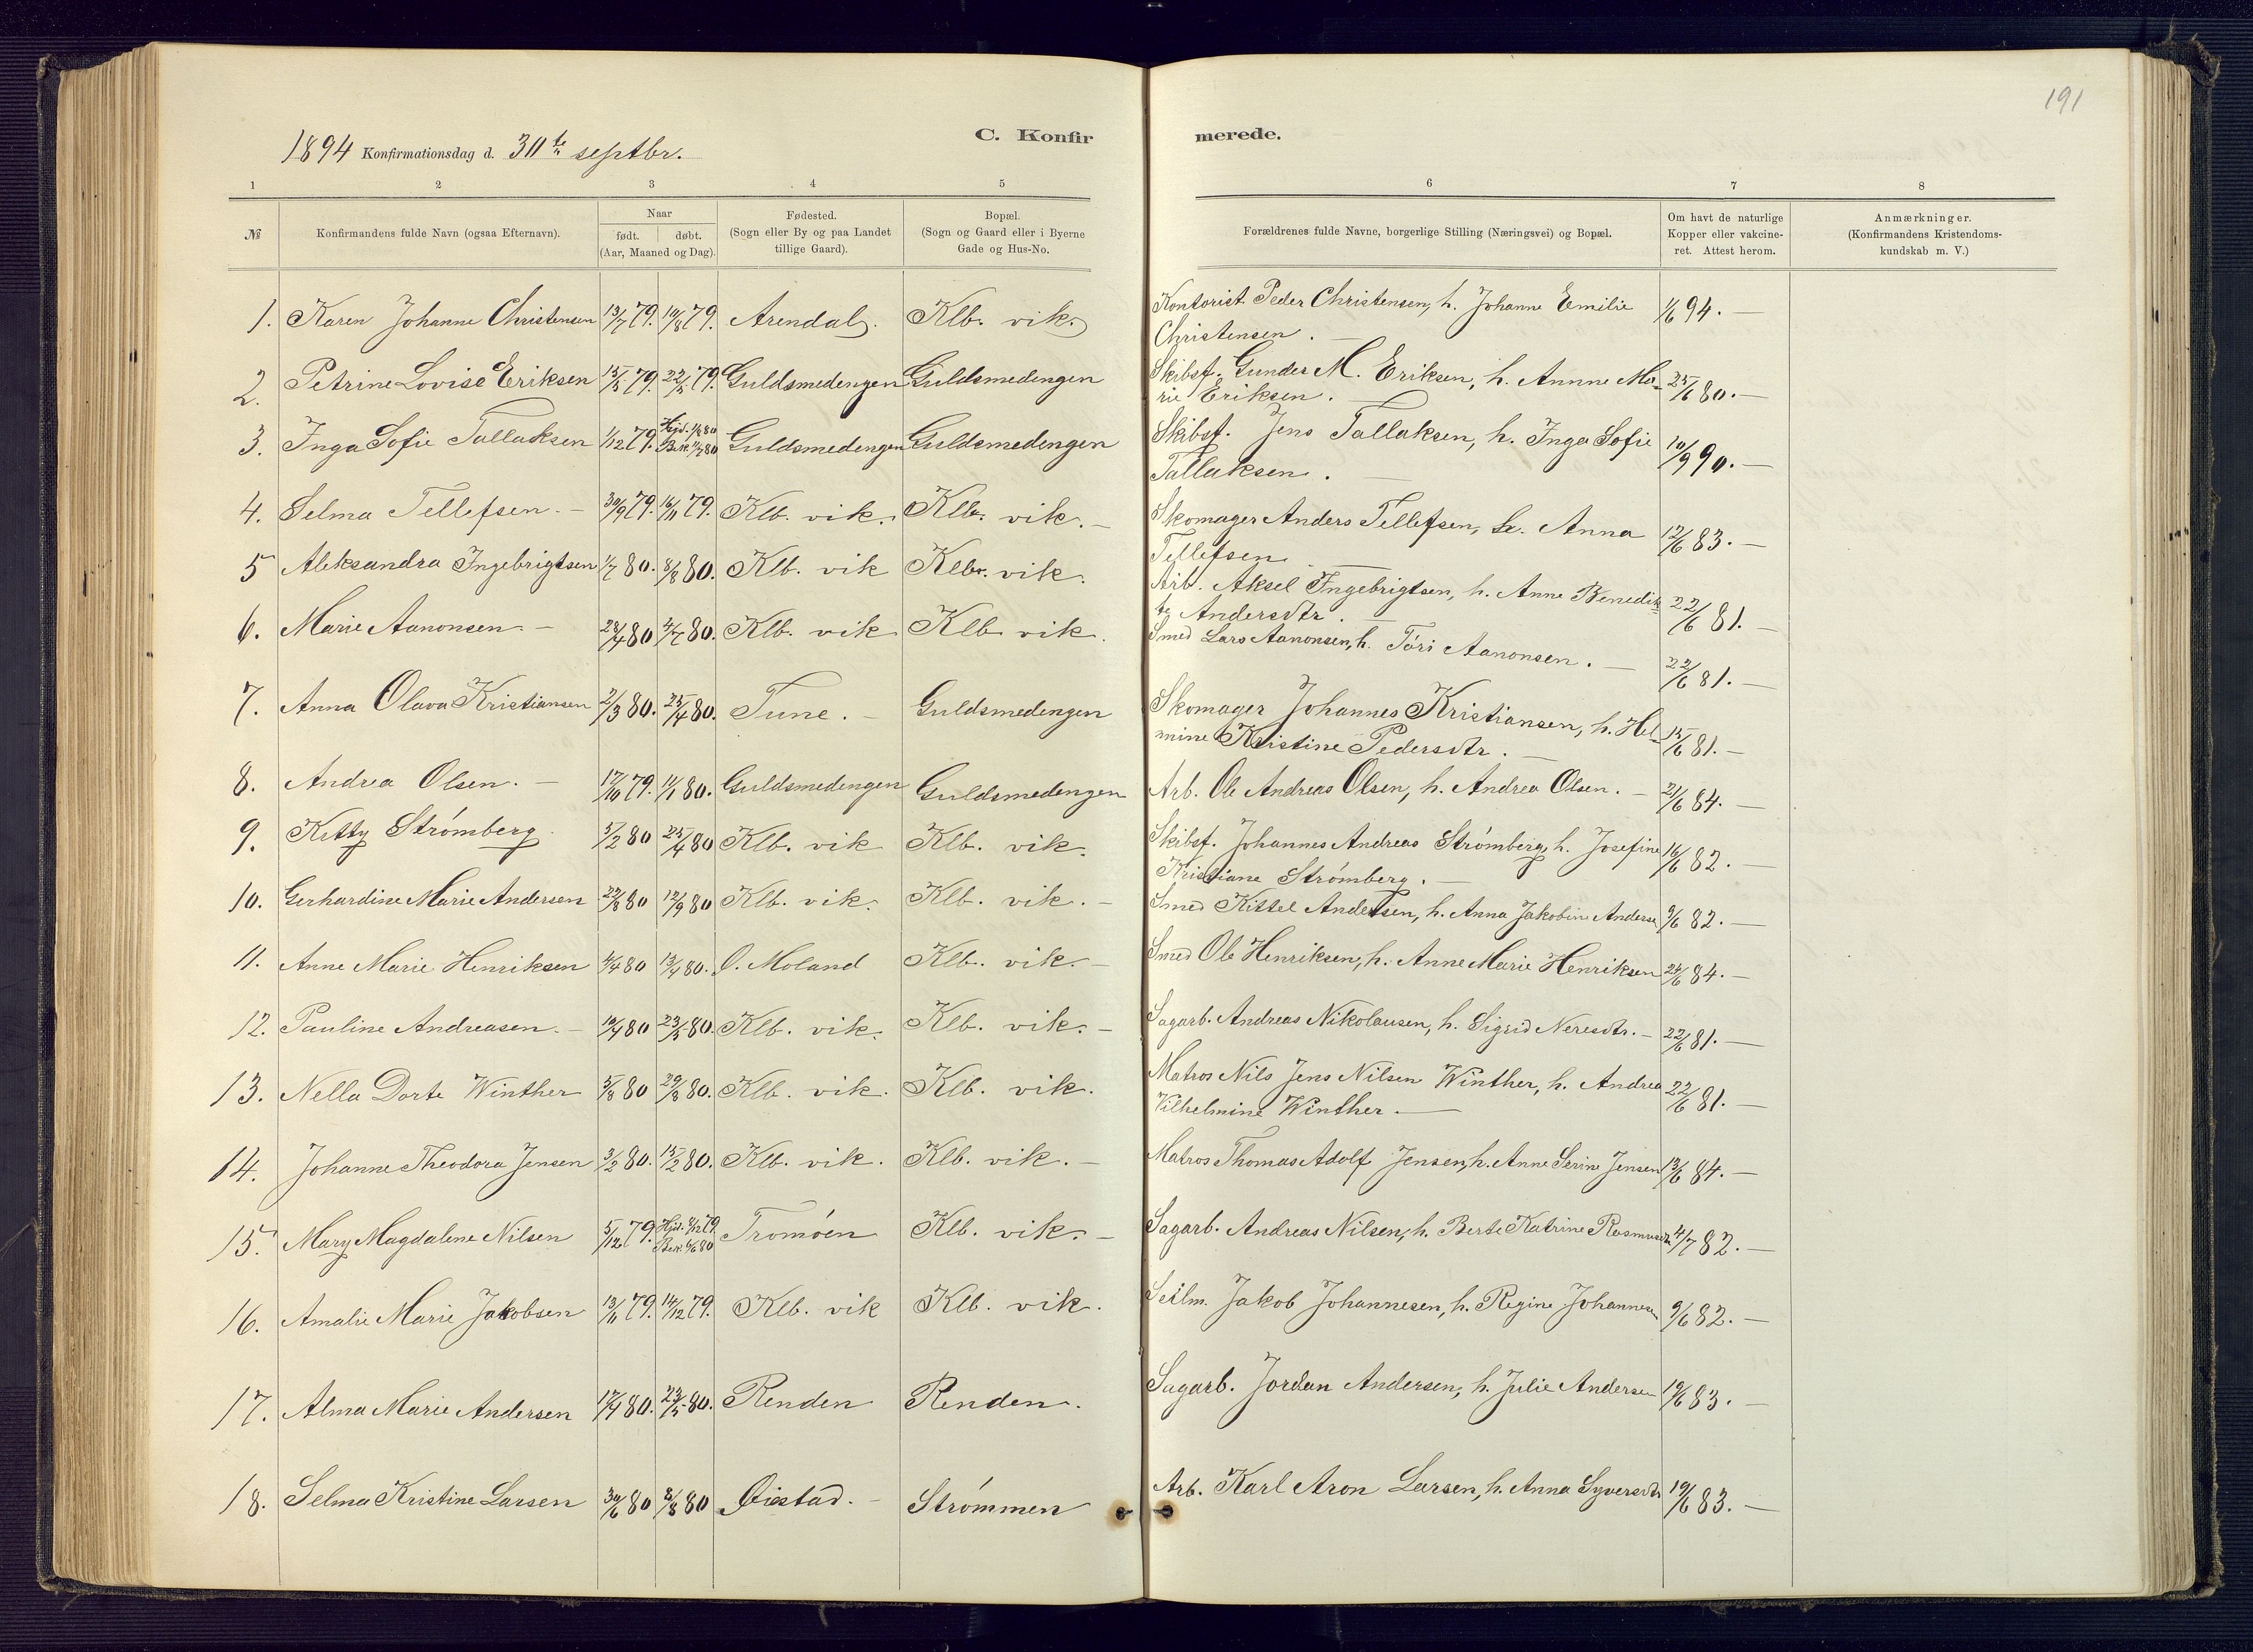 191
C. Konfir merede.
1894 Konfirmationsdag d. 30te septbr.
1 2 3 4 5 6 7 8
№ Konfirmandens fulde Navn (ogsaa Efternavn). Naar født. døbt. (Aar, Maaned og Dag). Fødested. (Sogn eller By og paa Landet tillige Gaard). Bopæl. (Sogn og Gaard eller i Byerne Gade og Hus-No. Forældrenes fulde Navne, borgerlige Stilling (Næringsvei) og Bopæl. Om havt de naturlige Kopper eller vakcineret. Attest herom. Anmærkninger. (Konfirmandens Kristendomskundskab m. V.)
1. Karen Johanne Christensen 13/7 79. 10/8 79. Arendal. Klb. vik. Kontorist Peder Christensen, h. Johanne Emilie 1/6 94. —
Christensen. —
2. Petrine Lovise Eriksen 15/5 79. 22/5 79. Guldsmedengen Guldsmedengen Skibsf. Gunder M. Eriksen, h. Annne Ma- 25/6 80. —
rie Eriksen. —
3. Inga Sofie Tallaksen 1/12 79. Guldsmedengen Guldsmedengen Skibsf. Jens Tallaksen, h. Inga Sofie 10/9 90. —
Tallaksen. —
4. Selma Tellefsen. — 30/9 79. 16/11 79. Klb. vik. Klb. vik. — Skomager Anders Tellefsen, h. Anna 12/6 83. —
Tellefsen —
5 Aleksandra Ingebrigtsen 1/7 80. 8/8 80. Klb. vik Klb. vik. Arb. Aksel Ingebrigtsen, h. Anne Benedik- 22/6 81. —
te Andersdtr. —
6. Marie Aanonsen — 28/4 80 4/7 80. Klb. vik Klb vik. Smed Lars Aanonsen, h. Tøri Aanonsen. — 22/6 81. —
7. Anna Olava Kristiansen 2/3 80. 25/4 80. Tune. — Guldsmedengen Skomager Johannes Kristiansen, h. Hel- 15/6 81. —
mine Kristine Pedersdtr. —
8. Andrea Olsen. — 17/10 79. 11/1 80. Guldsmedengen Guldsmedengen Arb. Ole Andreas Olsen, h. Andrea Olsen. — 21/6 84. —
9. Kitty Strömberg 5/2 80 25/4 80 Klb. vik Klb. vik. Skibsf. Johannes Andreas Strömberg, h. Josefine 16/6 82. —
Kristiane Strömberg. —
10. Gerhardine Marie Andersen 22/8 80 12/9 80 Klb. vik. Klb. vik. — Smed Kittel Andersen, h. Anna Jakobine Anderse 9/6 82. —
11. Anne Marie Henriksen 4/4 80 13/4 80. Ø. Moland Klb. vik. — Smed Ole Henriksen, h. Anne Marie Henriksen 24/6 84. —
12. Pauline Andreasen. — 10/4 80 23/5 80. Klb. vik. Klb. vik. — Sagarb. Andreas Nikolausen, h. Sigrid Neresdtr. — 22/6 81. —
13. Nella Dorte Winther 5/8 80 29/8 80. Klb. vik. Klb. vik. Matros Nils Jens Nilsen Winther, h. Andrea 22/6 81. —
Vilhelmine Winther. —
14. Johanne Theodora Jensen 3/2 80. 15/2 80. Klb. vik. Klb. vik. — Matros Thomas Adolf Jensen, h. Anne Serine Jensen 13/6 84. —
15. Mary Magdalene Nilsen 5/12 79. Tromöen Klb. vik. — Sagarb. Andreas Nilsen, h. Berte Katrine Rasmusdtr 4/7 82. —
16. Amalie Marie Jakobsen 13/11 79. 14/12 79. Klb. vik Klb. vik. Seilm. Jakob Johannesen, h. Regine Johannesen 9/6 82. —
17. Alma Marie Andersen 17/4 80. 23/5 80. Renden Renden. Sagarb. Jordan Andersen, h. Julie Andersen 19/6 83. —
18. Selma Kristine Larsen 30/6 80 8/8 80 Øiestad. — Strömmen Arb. Karl Aron Larsen, h. Anna Syversdtr 19/6 83. —